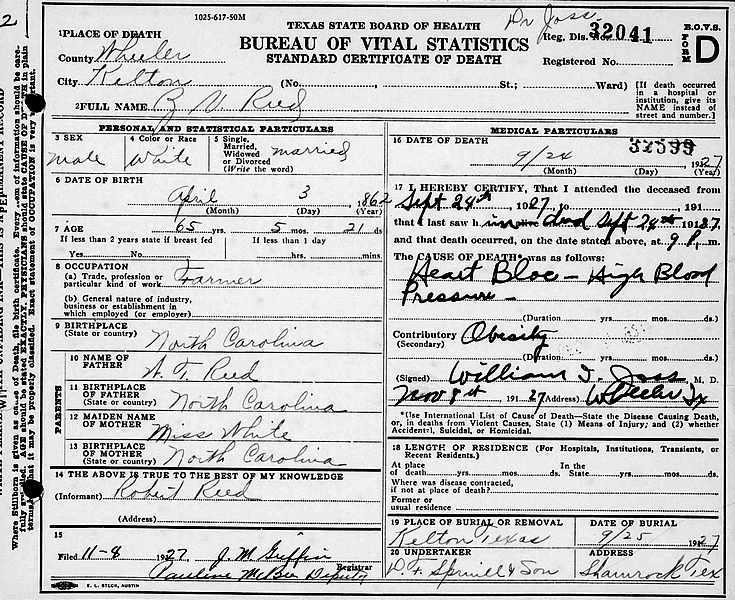 2
1025-617-50M
TEXAS STATE BOARD OF HEALTH
Dr Joss
BUREAU OF VITAL STATISTICS
STANDARD CERTIFICATE OF DEATH
Reg. Dis. No. 32041
Registered No.
B.O.V.S.
FORM D
1 PLACE OF DEATH
County Wheeler
City Kelton (No. St.; Ward)
[If death occurred in a hospital or institution, give its NAME instead of street and number.]
2 FULL NAME R V Reed
PERSONAL AND STATISTICAL PARTICULARS
3 SEX
male
4 Color or Race
White
5 Single, Married, Widowed or Divorced (Write the word)
married
6 DATE OF BIRTH
April 3 1862
(Month) (Day) (Year)
7 AGE 65 yrs. 5 mos. 21 ds
If less than 2 years state if breast fed
Yes No
If less than 1 day
hrs. mins.
8 OCCUPATION
(a) Trade, profession or particular kind of work Farmer
(b) General nature of industry, business or establishment in which employed (or employer)
9 BIRTHPLACE
(State or country) North Carolina
PARENTS
10 NAME OF FATHER
T. Reed
11 BIRTHPLACE OF FATHER
(State or country) North Carolina
12 MAIDEN NAME OF MOTHER
Miss White
13 BIRTHPLACE OF MOTHER
(State or country) North Carolina
14 THE ABOVE IS TRUE TO THE BEST OF MY KNOWLEDGE
(Informant) Robert Reed
(Address)
15
Filed 11-8 1927 J. M. Griffin
Registrar
Pauline McBee Deputy
E. L. STECK, AUSTIN
MEDICAL PARTICULARS
16 DATE OF DEATH
32599
9/24 1927
(Month) (Day) (Year)
17 I HEREBY CERTIFY, That I attended the deceased from
Sept 24th, 1927, to 191
that I last saw h dead Sept 24th 1927,
and that death occurred, on the date stated above, at 9 P. m.
The CAUSE OF DEATH* was as follows:
Heart Bloc - High Blood
Pressure -
(Duration) yrs. mos. ds.
Contributory Obesity
(Secondary)
(Duration) yrs. mos. ds.
(Signed) William J. Joss, M. D.
Nov 8th, 1927 (Address) Wheeler Tx
*Use International List of Cause of Death—State the Disease Causing Death, or, in deaths from Violent Causes, State (1) Means of Injury; and (2) whether Accidental, Suicidal, or Homicidal.
18 LENGTH OF RESIDENCE (For Hospitals, Institutions, Transients, or Recent Residents.)
At place of death yrs. mos. ds. In the State yrs. mos. ds.
Where was disease contracted, if not at place of death?
Former or usual residence
19 PLACE OF BURIAL OR REMOVAL
Kelton Texas
DATE OF BURIAL
9/25 1927
20 UNDERTAKER
ADDRESS
& Son
Shamrock Tex